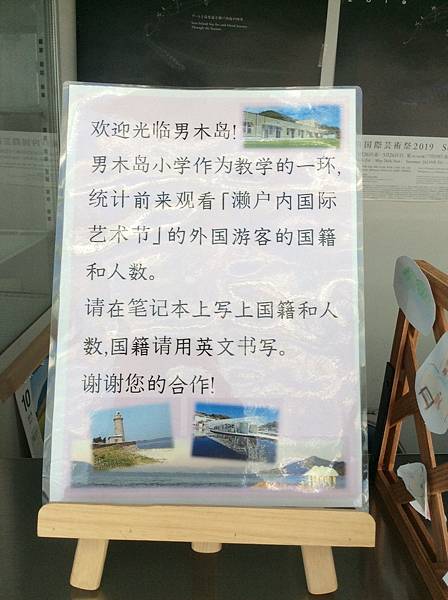 2019
欢迎光临男木岛!
男木岛小学作为教学的一环,
统计前来观看「濑户内国际
艺术节」的外国游客的国籍
和人数。
请在笔记本上写上国籍和人
数,国籍请用英文书写。
谢谢您的合作!
国際芸術祭2019
10